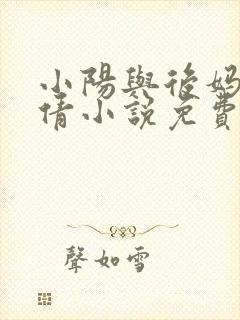 小陽與後媽
倩小說免費
聲如雪